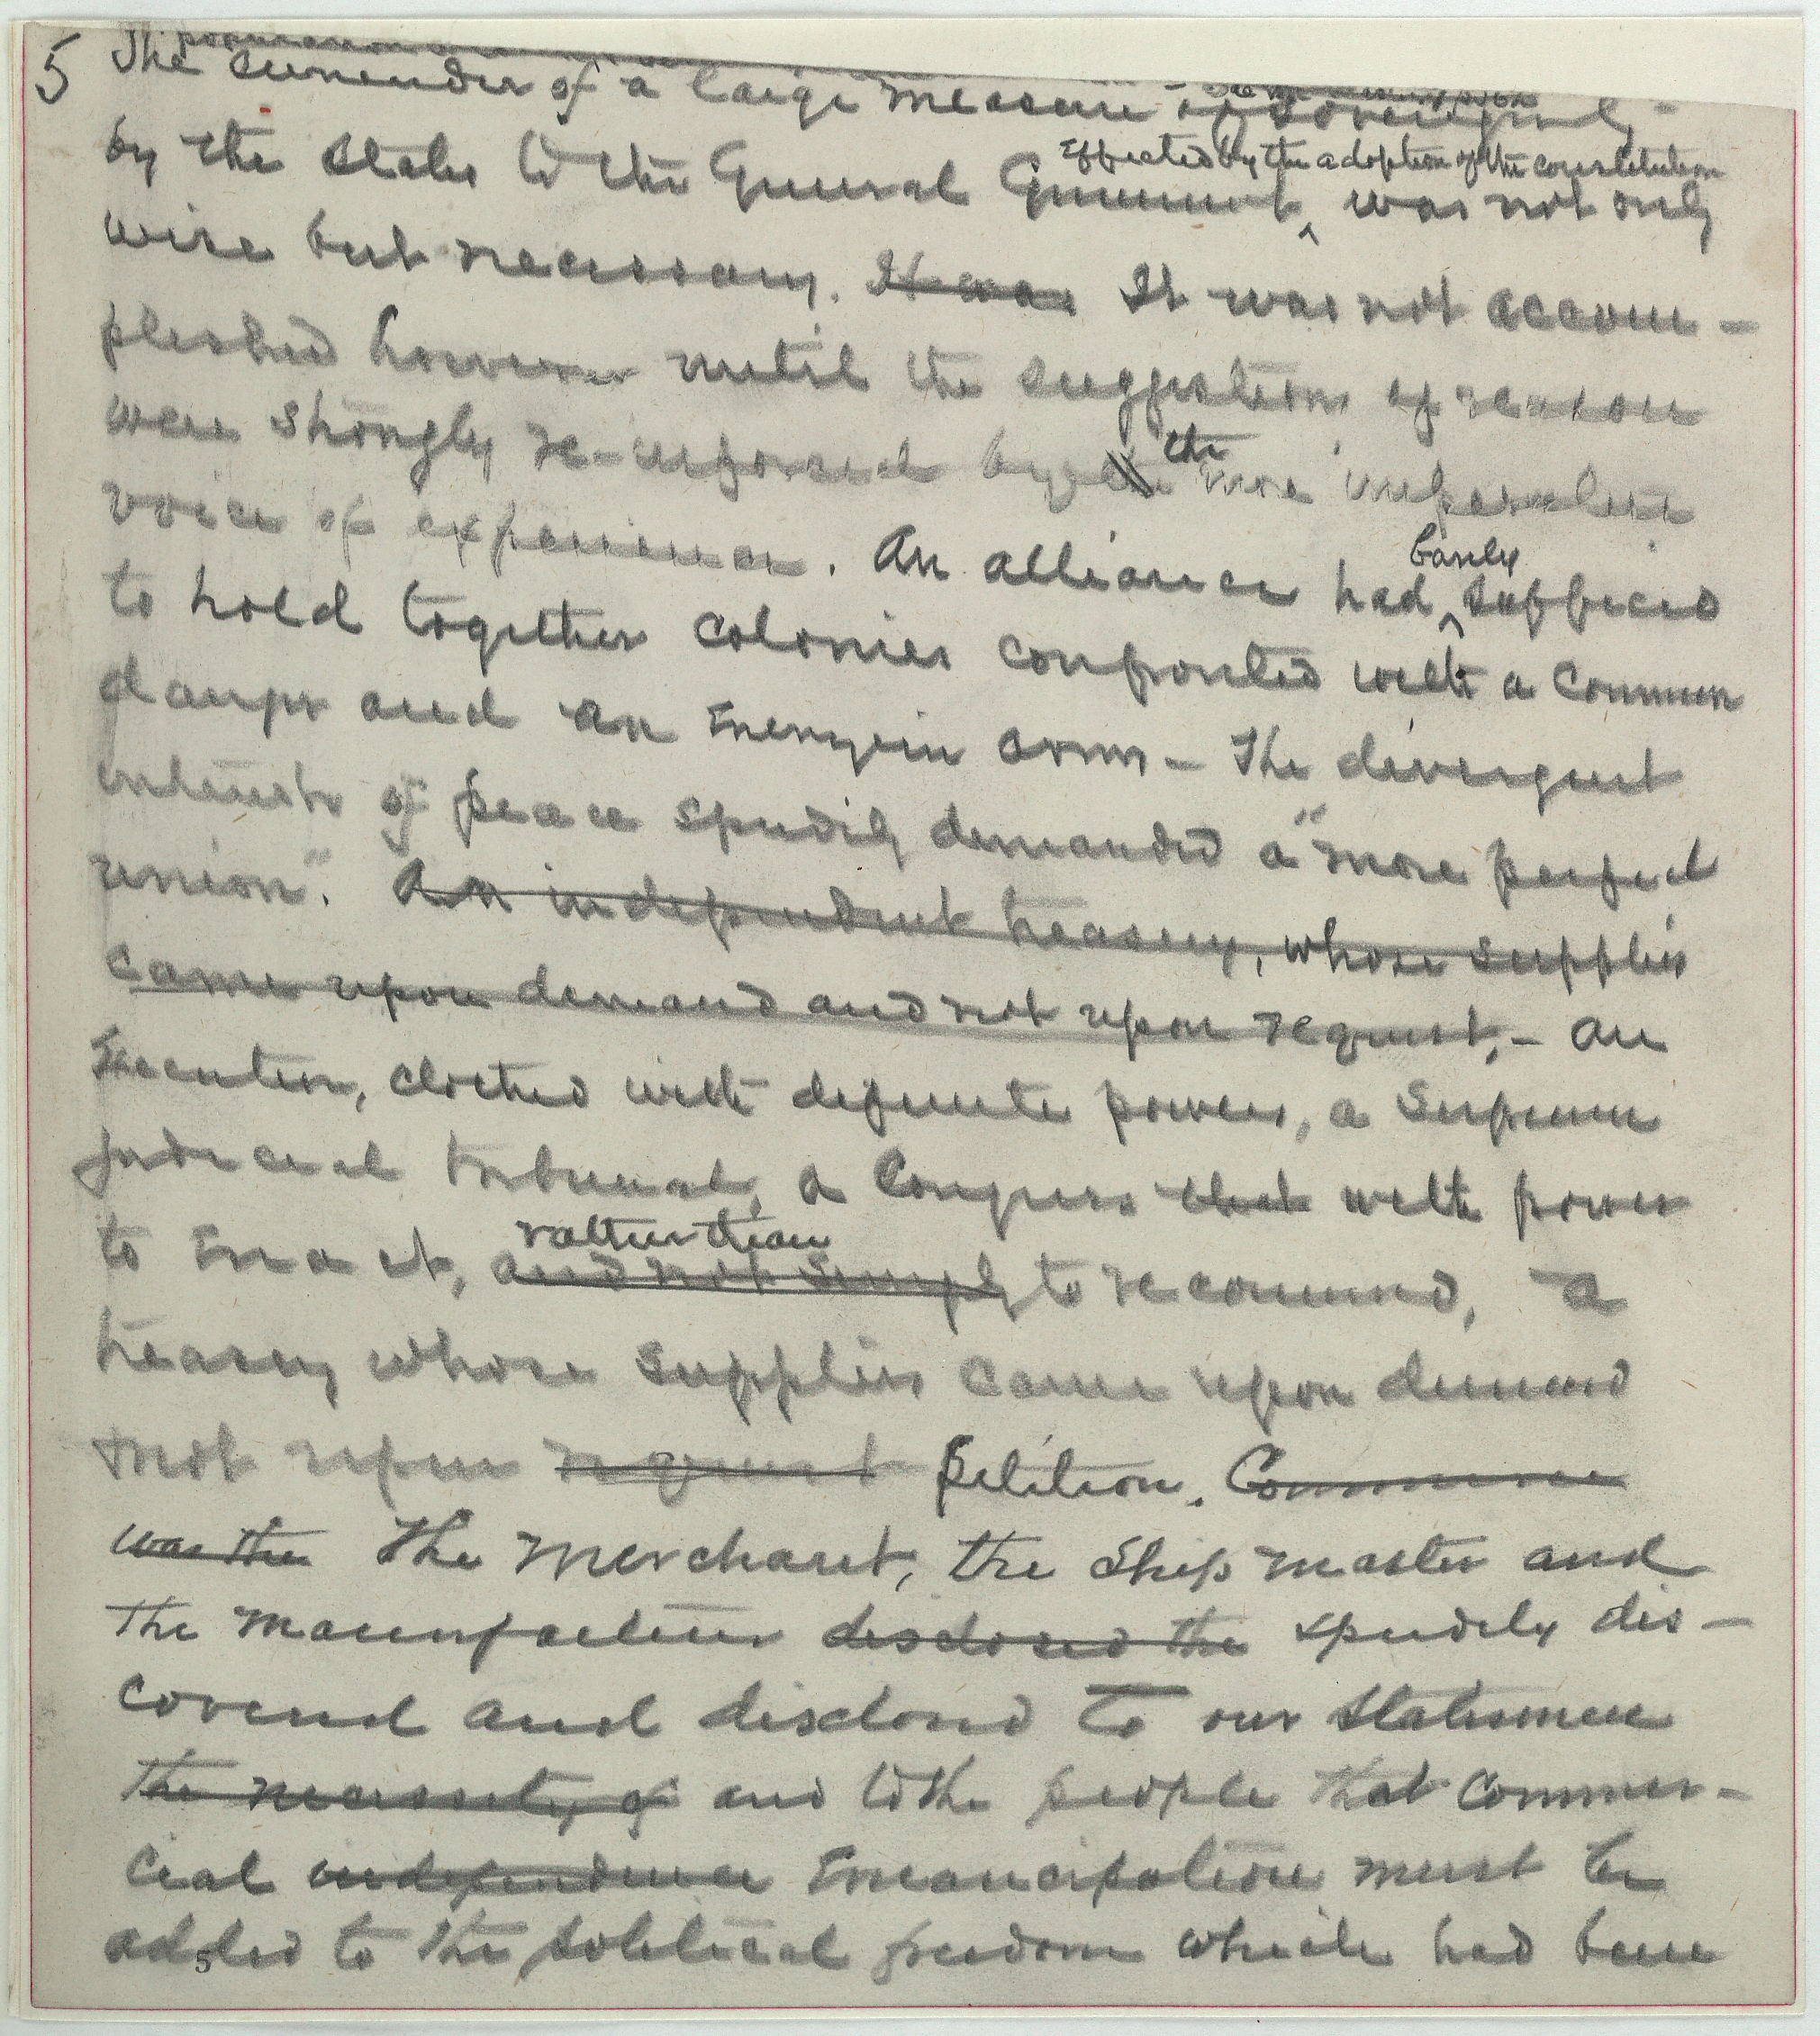 5 The surrender of a large measure of sovereignty -
by the States to the General Government, effected by the adoption of the constitution was not only
wise but necessary. It was It was not accom -
plished however until the suggestions of reason
were strongly re-inforced by the the more imperative
voice of experience. An alliance had barely sufficed
to hold together colonies confronted with a common
danger and an enemy in arms - The divergent
interests of peace speedily demanded a "more perfect
union". An independent treasury, whose supplies
came upon demand and not upon request, - an
Executive, clothed with definite powers, a Supreme
judicial tribunal, a Congress that with power
to enact, and not simply rather than to recommend, - a
treasury whose supplies came upon demand
not upon request petition. Commerce
was the The merchant, the Ship master and
the manufacturer disclosed the speedily dis -
covered and disclosed to our Statesmen
the necessity of and to the people that commer -
cial independence emancipation must be
added to the political freedom which had been
5